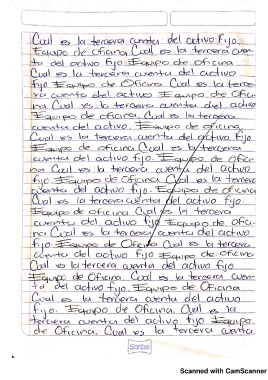 Cual es la tercera cuenta del activo fijo.
Equipo de oficina Cual es la tercera cuen-
ta del activo fijo Equipo de oficina
Cual es la tercera cuenta del activo
fijo Equipo de Oficina Cual es la terce-
ra cuenta del activo fijo Equipo de Ofici-
na Cual es la tercera cuenta del activo
fijo Equipo de oficina. Cual es la tercera
cuenta del activo. Equipo de oficina
Cual es la tercera cuenta del activo fijo
Equipo de oficina Cual es la tercera
cuenta del activo fijo. Equipo de Ofic-
ina Cual es la tercera cuenta del activo
fijo Equipo de Oficina Cual es la tercera
cuenta del activo fijo. Equipo de oficina
Cual es la tercera cuenta del activo fijo
Equipo de oficina Cual es la tercera
cuenta del activo fijo Equipo de ofici-
na Cual es la tercera cuenta del activo
fijo. Equipo de Oficina Cual es la tercera
cuenta del activo fijo Equipo de oficina
Cual es la tercera cuenta del activo fijo
Equipo de Oficina. Cual es la tercera cuen-
ta del activo fijo. Equipo de Oficina
Cual es la tercera cuenta del activo
fijo Equipo de oficina. Cual es la
tercera cuenta del activo fijo Equipo
de Oficina. Cual es la tercera cuenta.
Scribe
Scanned with CamScanner